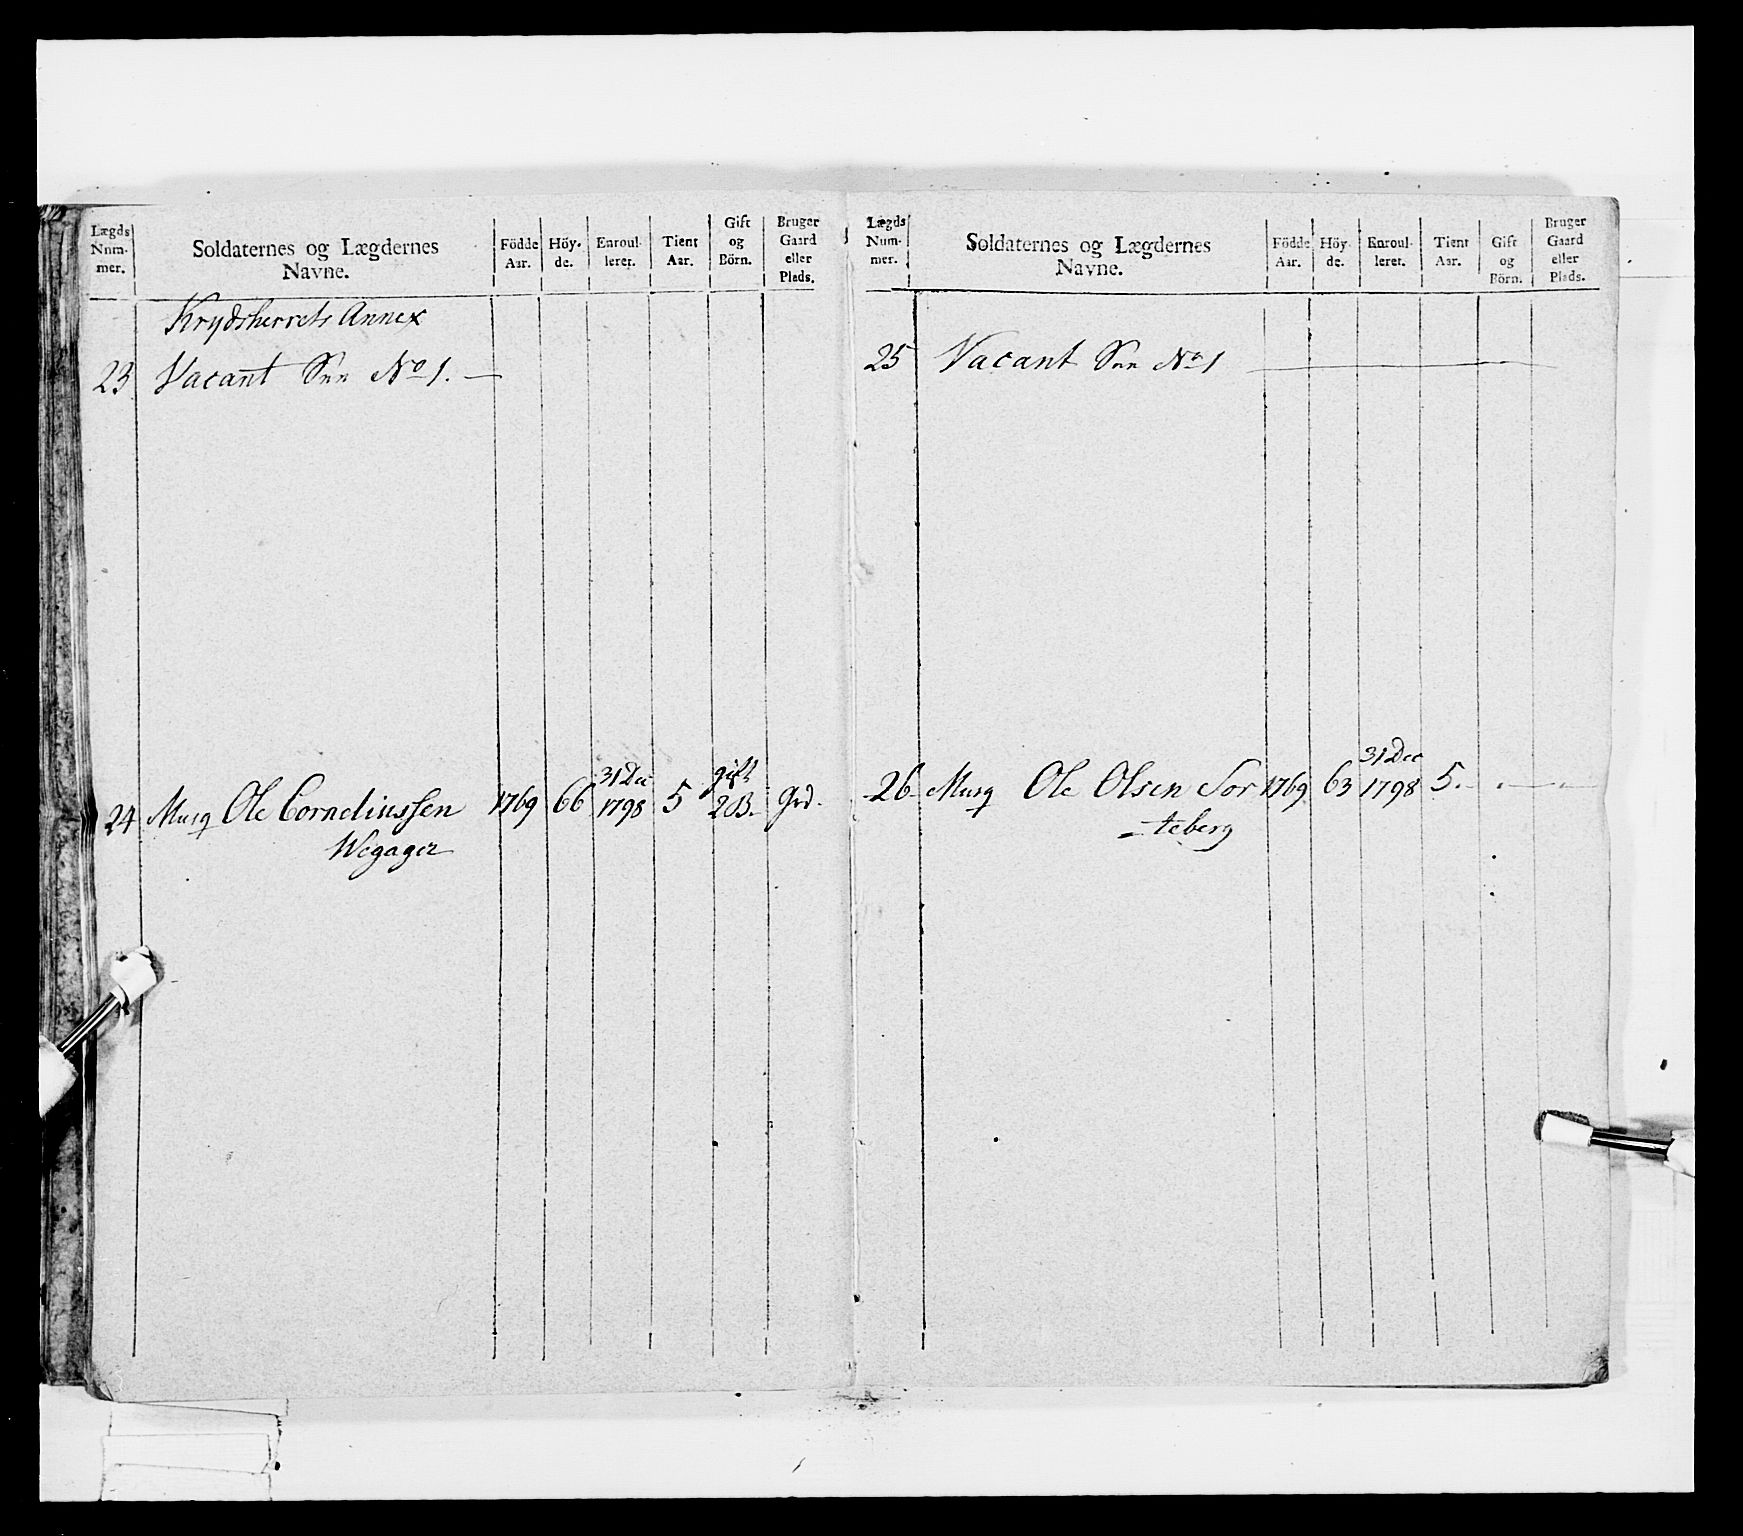 Lægds Num- mer.
Soldaternes og Lægdernes Navne.
Födde Aar.
Höy- de.
Enroul- leret.
Tient Aar.
Gift og Börn.
Bruger Gaard eller Plads.
Krydsherrets Annex
23 Vacant No 1.
24 Musq Ole Corneliussen 1769 66 31 Dec 1798 5 gift 2 B. Grd.
Wegager
Lægds Num- mer.
Soldaternes og Lægdernes Navne.
Födde Aar.
Höy- de.
Enroul- leret.
Tient Aar.
Gift og Börn.
Bruger Gaard eller Plads.
25 Vacant No 1
26 Musq Ole Olsen Sor 1769 63 31 Dec 1798 5.
teberg